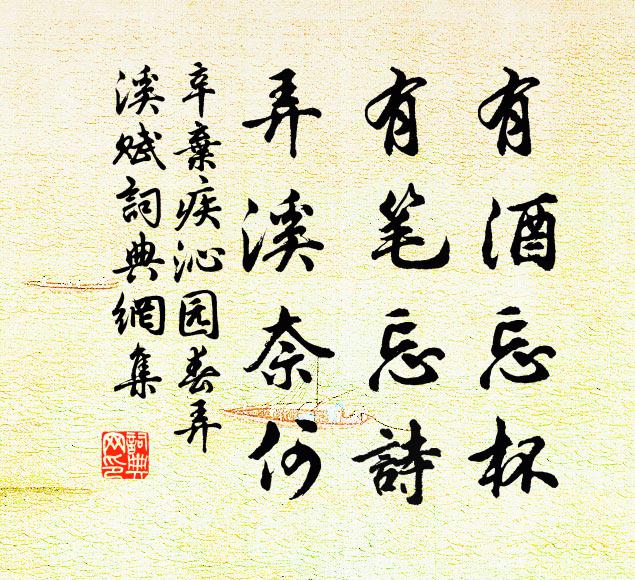 有酒忘杯
有笔忘詩
弄溪奈何
辛棄疾沁园春弄
溪赋詞典網集
詞典网印